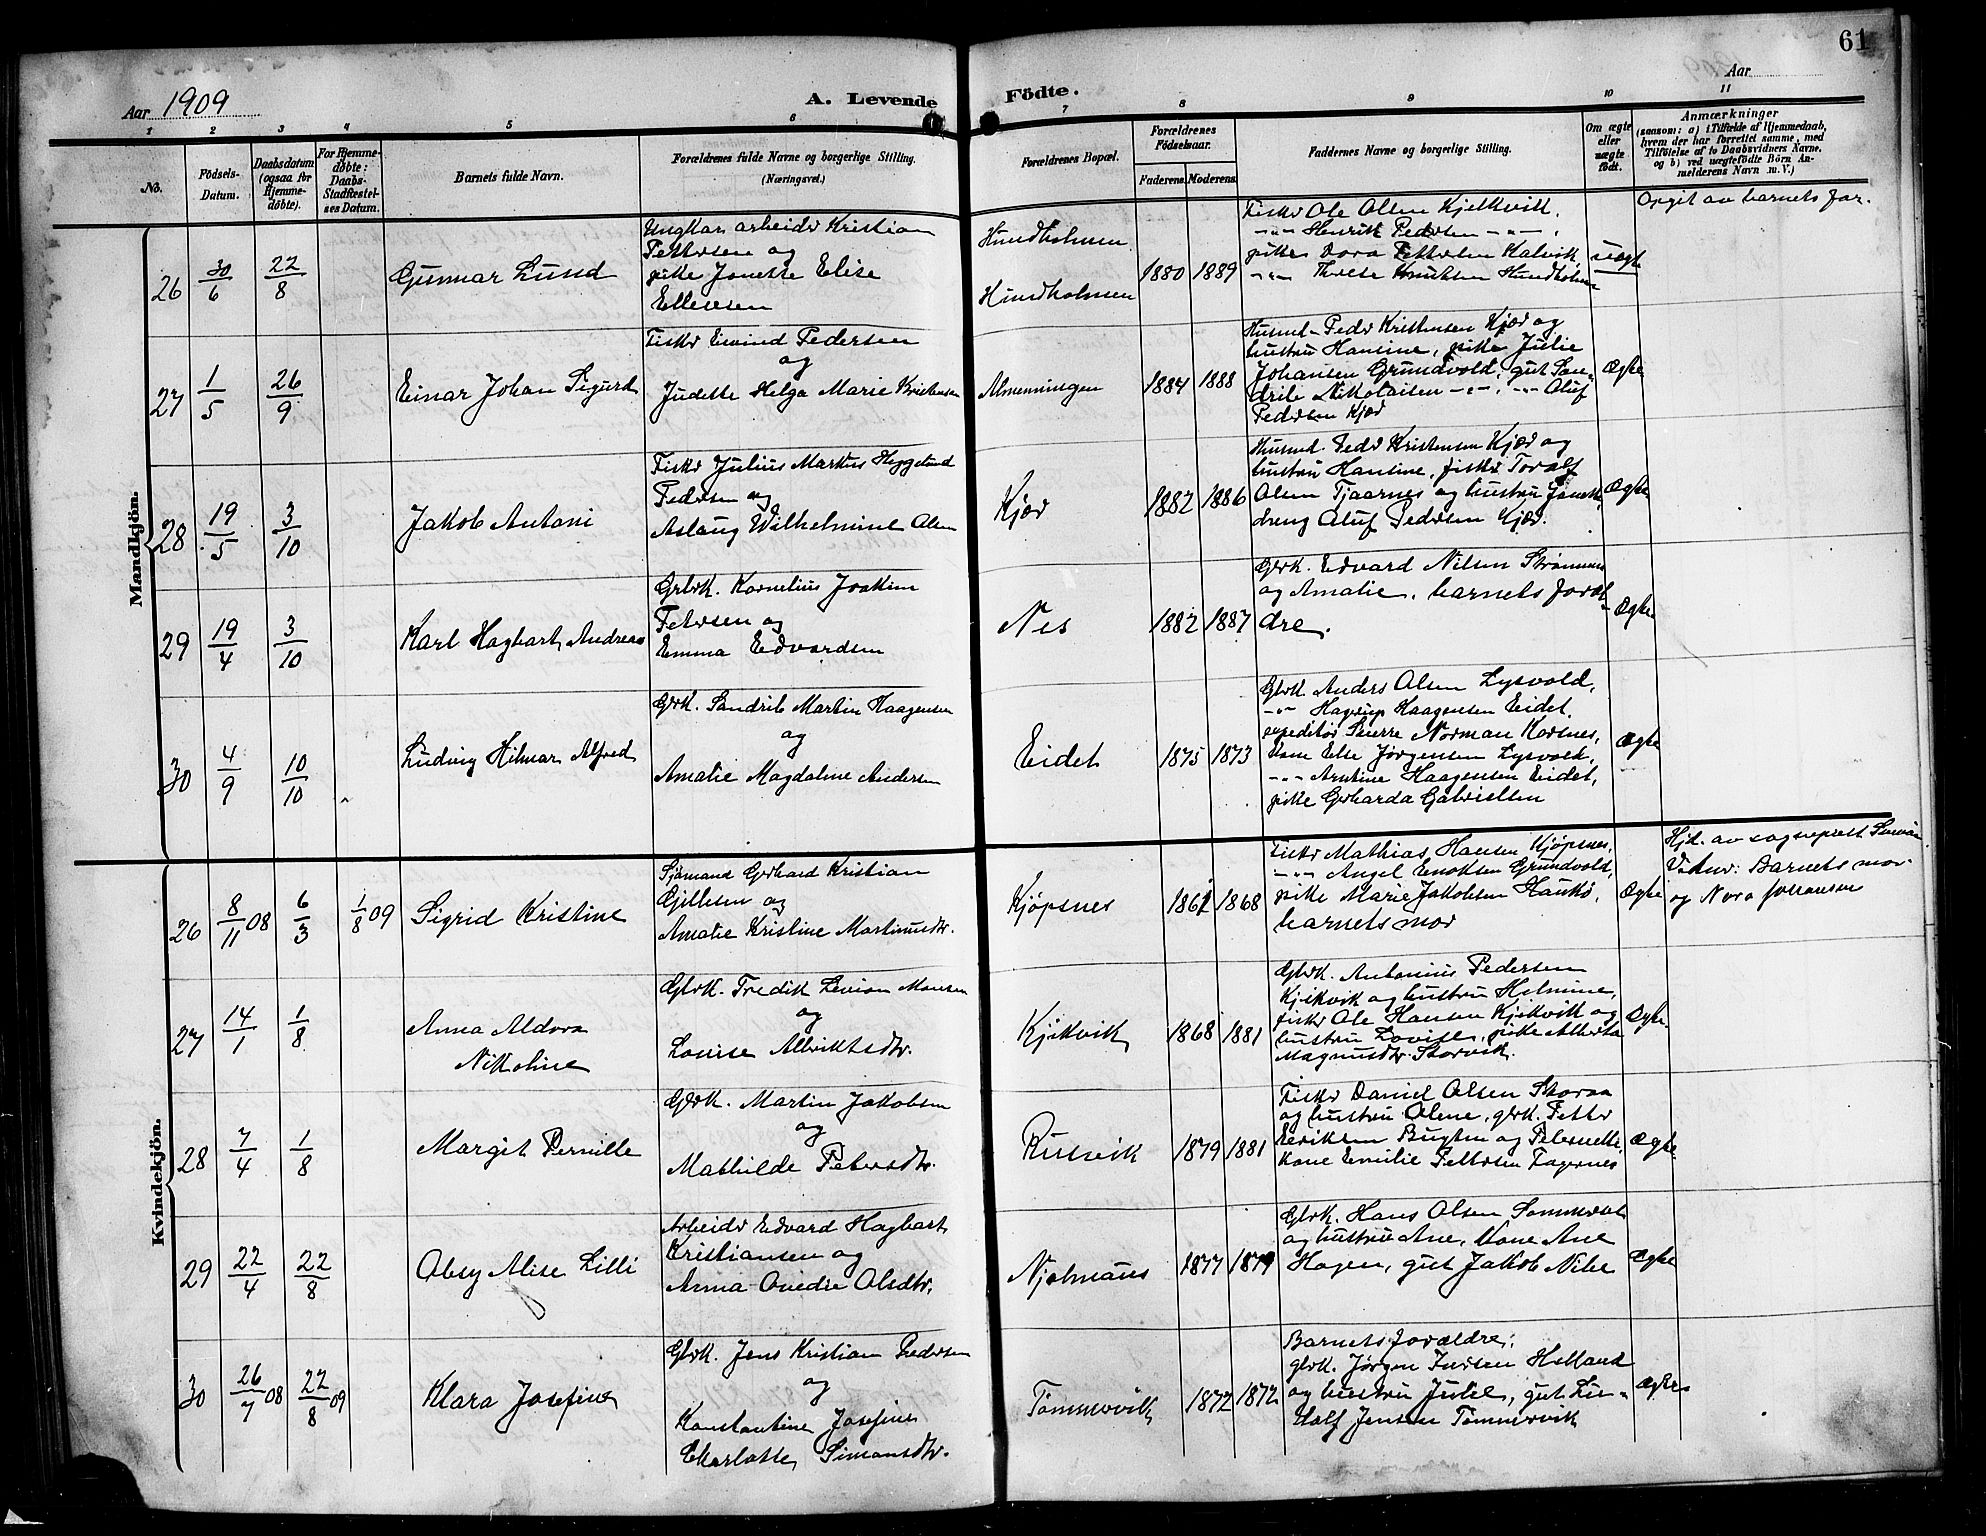 61
Aar 1909
A. Levende
Födte.
Aar
1 2 3 4 5 6 7 8 9 10 11
No.
Födsels-
Datum.
Daabsdatum
(ogsaa for
Hjemme-
døbte).
For Hjemme-
døbte:
Daabs-
Stadfæstel-
ses Datum.
Barnets fulde Navn.
Forældrenes fulde Navne og borgerlige Stilling.
(Næringsvei.)
Forældrenes Bopæl.
Forældrenes
Fødselsaar.
Faderens. Moderens.
Faddernes Navne og borgerlige Stilling.
Om ægte
eller
uægte
født.
Anmærkninger
(saasom: a) i Tilfælde af Hjemmedaab,
hvem der har forrettet samme, med
Tilføielse af to Daabsvidners Navne,
og b) ved uægtefødte Börn An-
melderens Navn m. V.)
Mandkjön.
26 30/6 22/8
Gunnar Lund
Ungkar arbeider Kristian
Pettersen og
pike Jonette Elise
Ellevsen
Hundholmen
Hundholmen
1880 1889
Fisker Ole Olsen Kjelkvik,
-"- Henrik Pedersen -"-,
piker Dora Pettersen Kalvik
-"- Therese Knutsen Hundholmen
uægte
Opgit av barnets far.
27 1/5 26/9
Einar Johan Sigurd
Fisker Eivind Pedersen
og
Judette Helga Marie Kristensen
Almenningen
1884 1888
Husmd. Peder Kristensen Kjær og
hustru Hansine, pike Julie
Johansen Grundvold, gut Sen-
drik Nikolaisen -"-, -"- Oluf
Pedersen Kjær
Ægte
28 19/5 3/10
Jakob Antoni
Fisker Julius Markus Heggelund
Pedersen og
Aslaug Wilhelmine Olsen
Kjær
1882 1886
Husmd. Peder Kristensen Kjær og
hustru Hansine, fisker Toralf
Olsen Tjaarnes og hustru Jonette,
dreng Oluf Pedersen Kjær.
Ægte
29 19/4 3/10
Karl Hagbart Andreas
Grbrk. Kornelius Joakim
Petersen og
Emma Edvardsen
Nes
1882 1887
Gbrk. Edvard Nilsen Strømsnes
og Amalie, barnets foræl-
dre.
Ægte
30 4/9 10/10
Ludvig Hilmar Alfred
Gbrk. Sendrik Martin Haagensen
og
Amalie Magdaline Andersen
Eidet
1875 1873
Gbrk. Anders Olsen Lysvold,
-"- Hagerup Haagensen Eidet,
expeditør Sverre Norman Korsnes,
kone Else Jørgensen Lysvold,
-"- Arntine Haagensen Eidet,
pike Gerharda Gabrielsen
Ægte
Kvindekjön.
26 8/11 08 6/3 1/8 09
Sigrid Kristine
Sjømand Gerhard Kristian
Gillesen og
Amalie Kristine Martinusdtr.
Kjøpsnes
1861 1868
Fisker Mathias Hansen Kjøpsnes,
-"- Angel Enoksen Grundvold,
pike Marie Jakobsen Haukø,
barnets mor
Ægte
Hjd. av sogneprest
Vidner: Barnets mor
og Nora Johansen
27 14/1 1/8
Anna Aldora
Nikoline
Gbrk. Fredik Levion Monsen
og
Lovise Albriktsdtr.
Kjikvik
1868 1881
Gbrk. Antonius Pedersen
Kjikvik og hustru Helmine,
fisker Ole Hansen Kjikvik og
hustru Lovise, pike Alberta
Magnusdtr. Storvik.
Ægte
28 7/4 1/8
Margit Pernille
Gbrk. Martin Jakobsen
og
Mathilde Petersdtr.
Rusvik
1879 1881
Fisker Daniel Olsen Storaa
og hustru Olene, gbrk. Petter
Eriksen Bugten og Peternelle,
kone Emilie Pettersen Fagernes
Ægte
29 22/4 22/8
Olsy Alise Lilli
Arbeider Edvard Hagbart
Kristiansen og
Anna Ovedie Olsdtr.
Njalmaus
1877 1879
Gbrk. Hans Olsen Sommerset
og hustru Ane, kone Ane
Hagen, gut Jakob Nilse
Ægte
30 26/7 08 22/8 09
Klara Josefine
Gbrk. Jens Kristian Pedersen
og
Konstantine Josefine
Charlotte Simonsdtr.
Tømmervik
1872 1872
Barnets forældre,
gbrk. Jørgen Iversen Helland
og hustru Julie, gut Lu-
dolf Jensen Tømmervik
Ægte